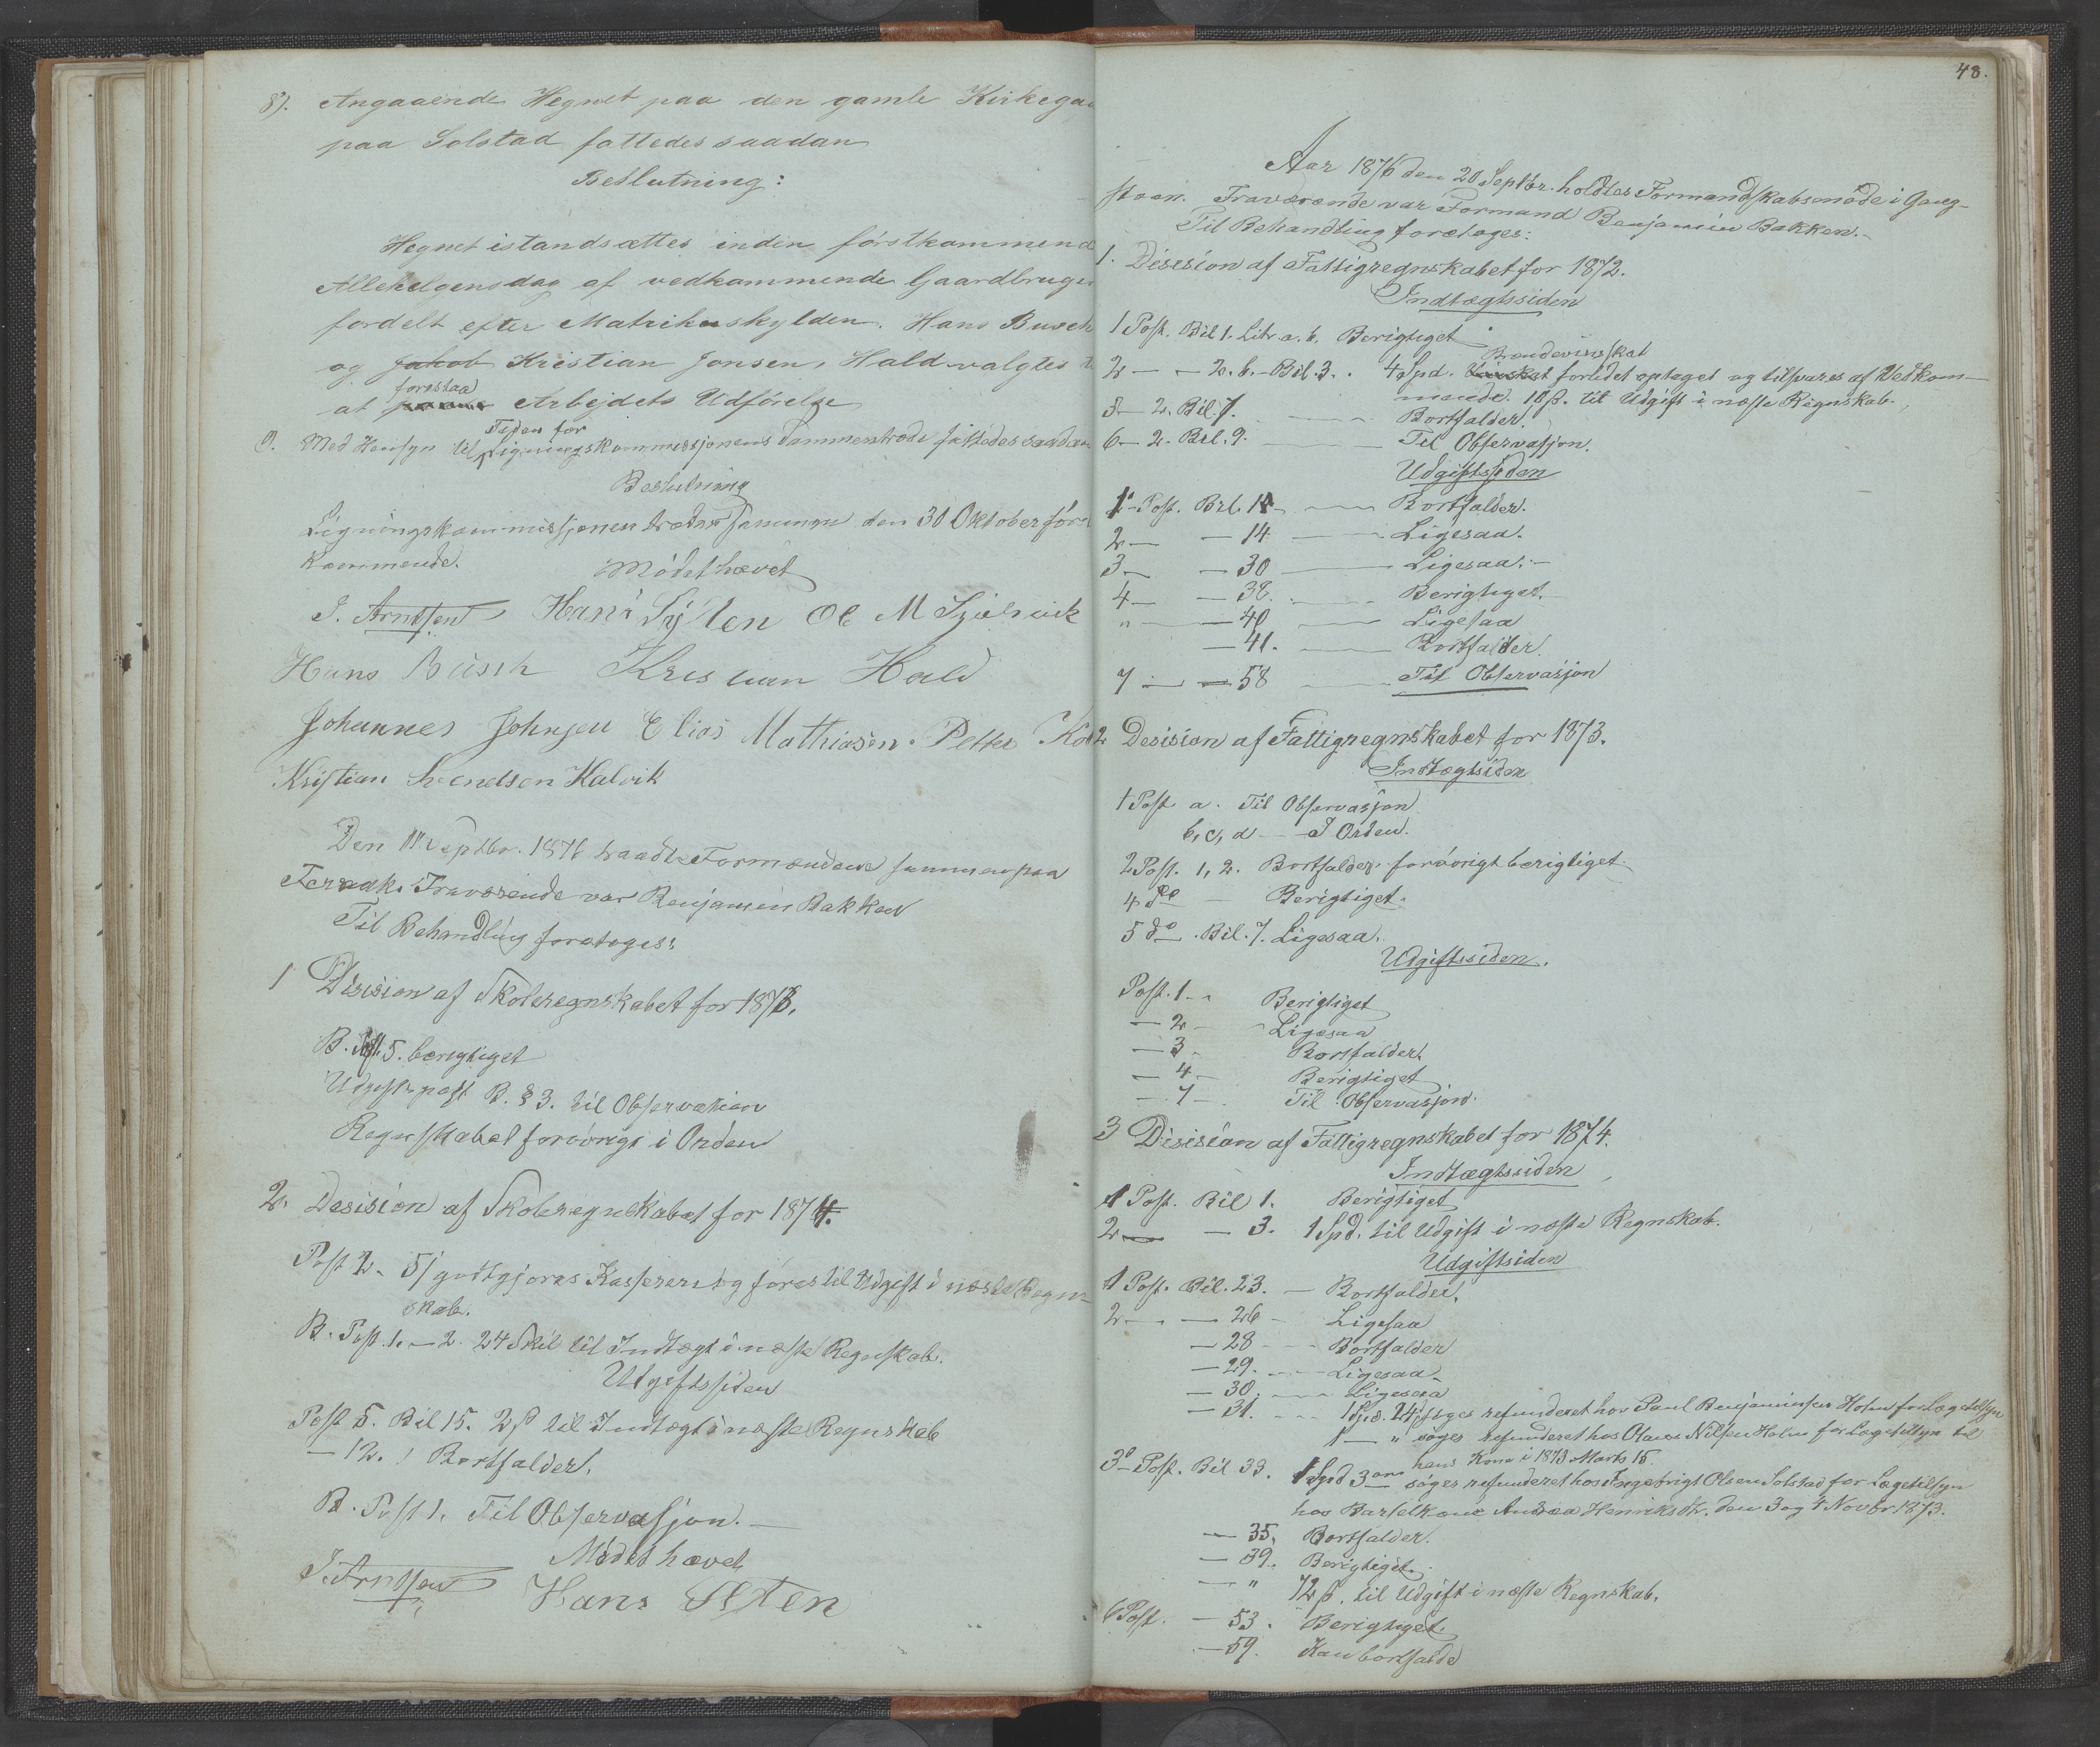 8). Angaaende Hegnet paa den gamle Kirkegaa
paa Solstad fattedes saadan
Beslutning:
Hegnet istandsættes inden førstkommend
Allehelgensdag af vedkommende Gaardbruger
fordelt efter Matrikuskylden. Hans Busch
og Jakob Kristian Jonsen, Hald valgtes t
forestaa
at Arbejdets Udførelse
Tiden for
9. Med Hensyn til Ligningskommissjonens Sammentræde fattedes saadan
Beslutning
Ligningskommissjonen træder sammen den 30 Oktober først
kommende.
Mødet hævet
J. Arntsen Hans Sylten Ol M
Hans Busch Kristian Hald
Johannes Johnsen Elias Mathiasen. Petter
Kristian Svendsen Kalvik
Den 11 Septbr. 1876 traadte Formændene sammen paa
Terraak. Fraværende var Benjamin Bakken
Til Behandling foretoges:
1 Disision af Skoleregnskabet for 1873.
B. Post. 5. berigtiget
Udgiftspost B. § 3. til Observation
Regnskabet forøvrigt i Orden
2. Desision af Skoleregnskabet for 1874.
Post 2. 5/ godtgjøres Kassereren og føres til Udgift i næste Regn-
skab.
B. Post. 1. – 2. 24 Skil til Indtægt i næste Regnskab.
Udgiftssiden
Post 5. Bil 15. 2ß til Indtægt i næste Regnskab
– 12. ! Bortfalder.
B. Post 1. Til Observasjon. –
Mødet hævet
J. Arntsen Hans Sylten
48.
Aar 1876 den 20 Septbr. holdtes Formandskabsmøde i Gaug-
staen. Fraværende var Formand Benjamin Bakken. –
Til Behandling foretoges:
1. Disision af Fattigregnskabet for 1872.
Indtægtssiden
1 Post. Bil 1. Litr. a. b. Berigtiget
Brændevinsskat
2 – – 2. b. – Bil. 3. . 4 Spd. forledet optaget og tilsvares af Vedkom-
mende. 18 ß. til Udgift i næste Regnskab.
3 – 2. Bil. 7. — Bortfalder.
6 – 2. Bil. 9. — Til Observasjon.
Udgiftssiden
1 – Post. Bil. 11 – — Bortfalder.
2 – – 14 — Ligesaa.
3 – – 30 — Ligesaa. –
4 – – 38. — Berigtiget.
" – 40 — Ligesaa
– 41. — Bortfalder.
7 – – 58 — Til Observasjon
2 Desision af Fattigregnskabet for 1873.
Indtægtsiden
1 Post a. Til Observasjon
b, c, d – – I Orden.
2 Post. 1, 2. Bortfalder. forøvrigt berigtiget.
4 do – Berigtiget.
5 do . Bil. 7. Ligesaa.
Udgiftssiden.
Post. 1 – Berigtiget
– 2 – Ligesaa
– 3 – Bortfalder.
– 4 – Berigtiget
– 7 – Til Observasjon.
3 Disision af Fattigregnskabet for 1874.
Indtægtssiden
1 Post. Bil 1. Berigtiget
2 — – 3. 1 Spd. til Udgift i næste Regnskab.
Udgiftsiden
1 Post. Bil. 23. – Bortfalder.
2 – – 26 – Ligesaa
– 28 – – Bortfalder
– 29. – – Ligesaa
– 30. – – Ligesaa
– 31. – – 1 Spd. 24ß søges refunderet hos Paul Benjaminsen Holm for Lægetilsyn
1 – " søges refunderet hos Olaus Nilsen Holm for Lægetilsyn til
hans Kone i 1873 Marts 15.
3 – Post. Bil 33. 1 Spd 3 søges refunderet hos Ingebrigt Olsen Solstad for Lægetilsyn
hos Barselkone Andrea Henriksdtr. den 3 og 4 Novbr 1873.
– 35. Bortfalder.
– 39. Berigtiget.
– " 72 ß. til Udgift i næste Regnskab.
6 Post. – 53. Berigtiget.
– 59. Kan bortfalde